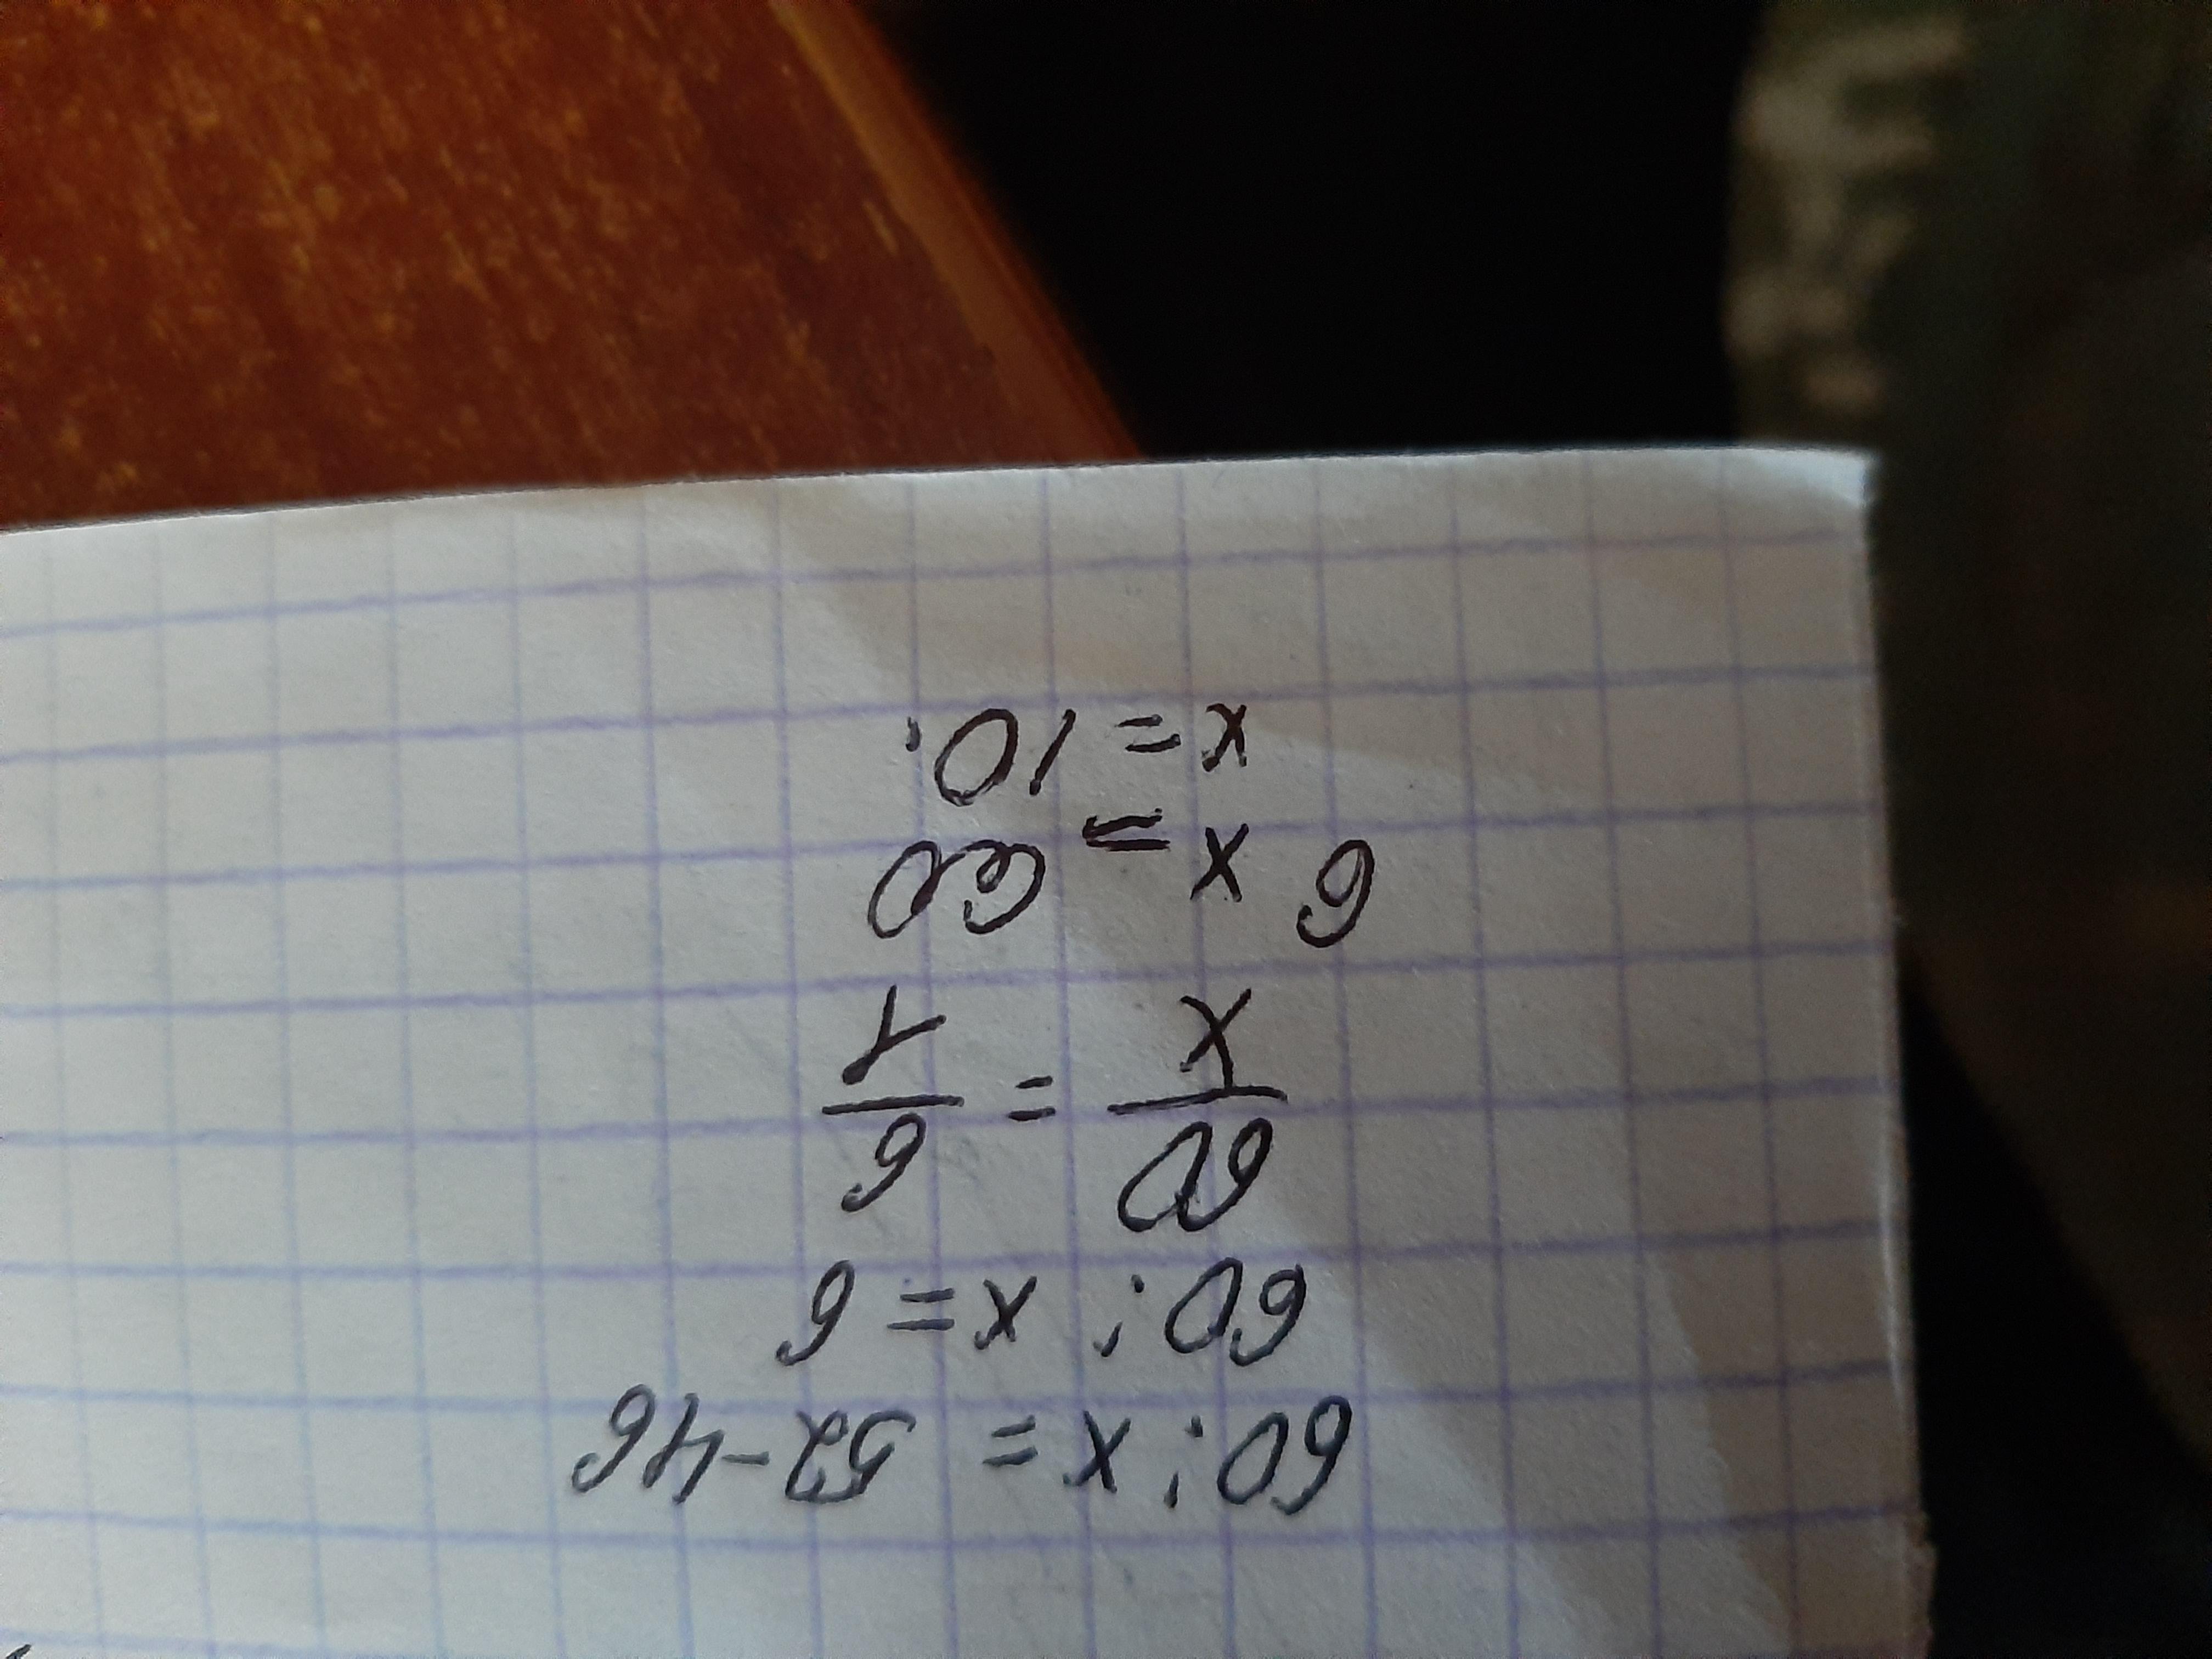 60 : x = 52 - 46
60 : x = 6
60/x = 6/1
6x = 60
x = 10.